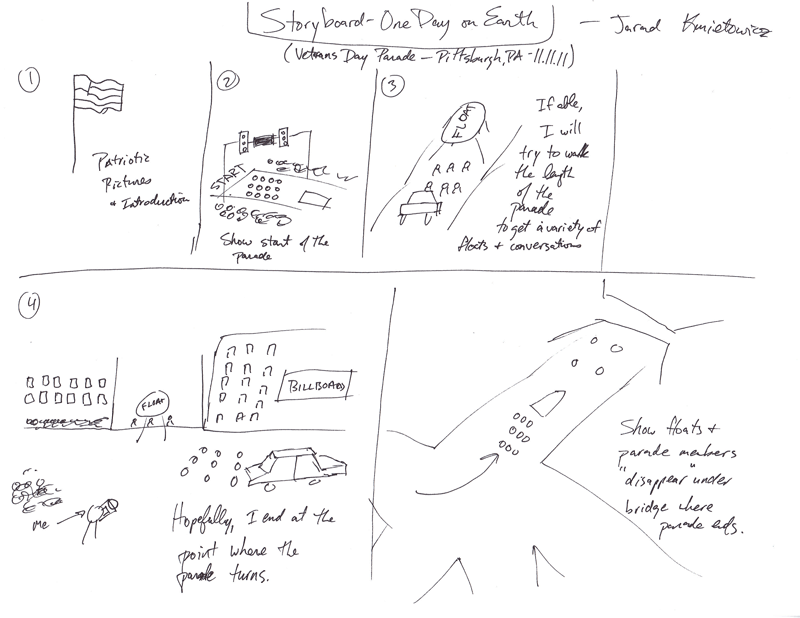 Storyboard - One Day on Earth
— Jarad Kmietowicz
(Veterans Day Parade — Pittsburgh, PA - 11.11.11)
1
Patriotic
Pictures
+ Introduction
2
START
Show start of the
parade
3
FLOAT
If able,
I will
try to walk
the length
of the
parade
to get a variety of
floats + conversations
4
FLOAT
BILLBOARD
Me
Hopefully, I end at the
point where the
parade turns.
Show floats +
parade members
"disappear" under
bridge where
parade ends.